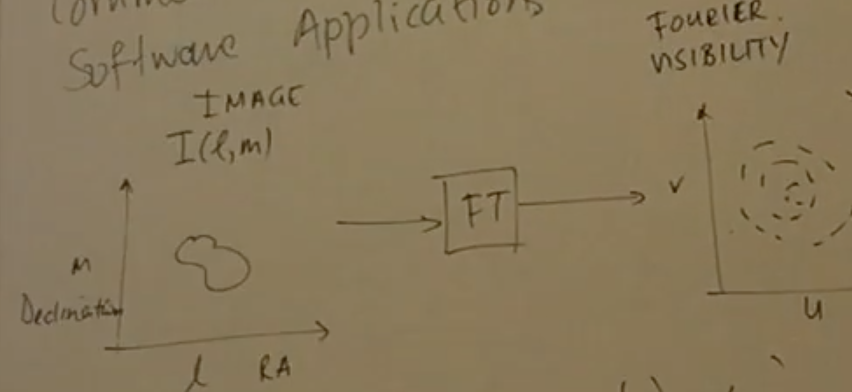 Software Applications
IMAGE
I(l,m)
M
Declination
l RA
FT
FOURIER.
VISIBILITY
V
U